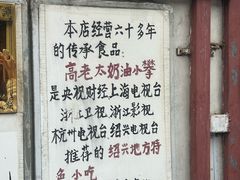 本店经营六十多年
的传承食品：
高老太奶油小攀
是央视财经上海电视台
浙江卫视、浙江影视
杭州电视台绍兴电视台
推荐的绍兴地方特
色小吃